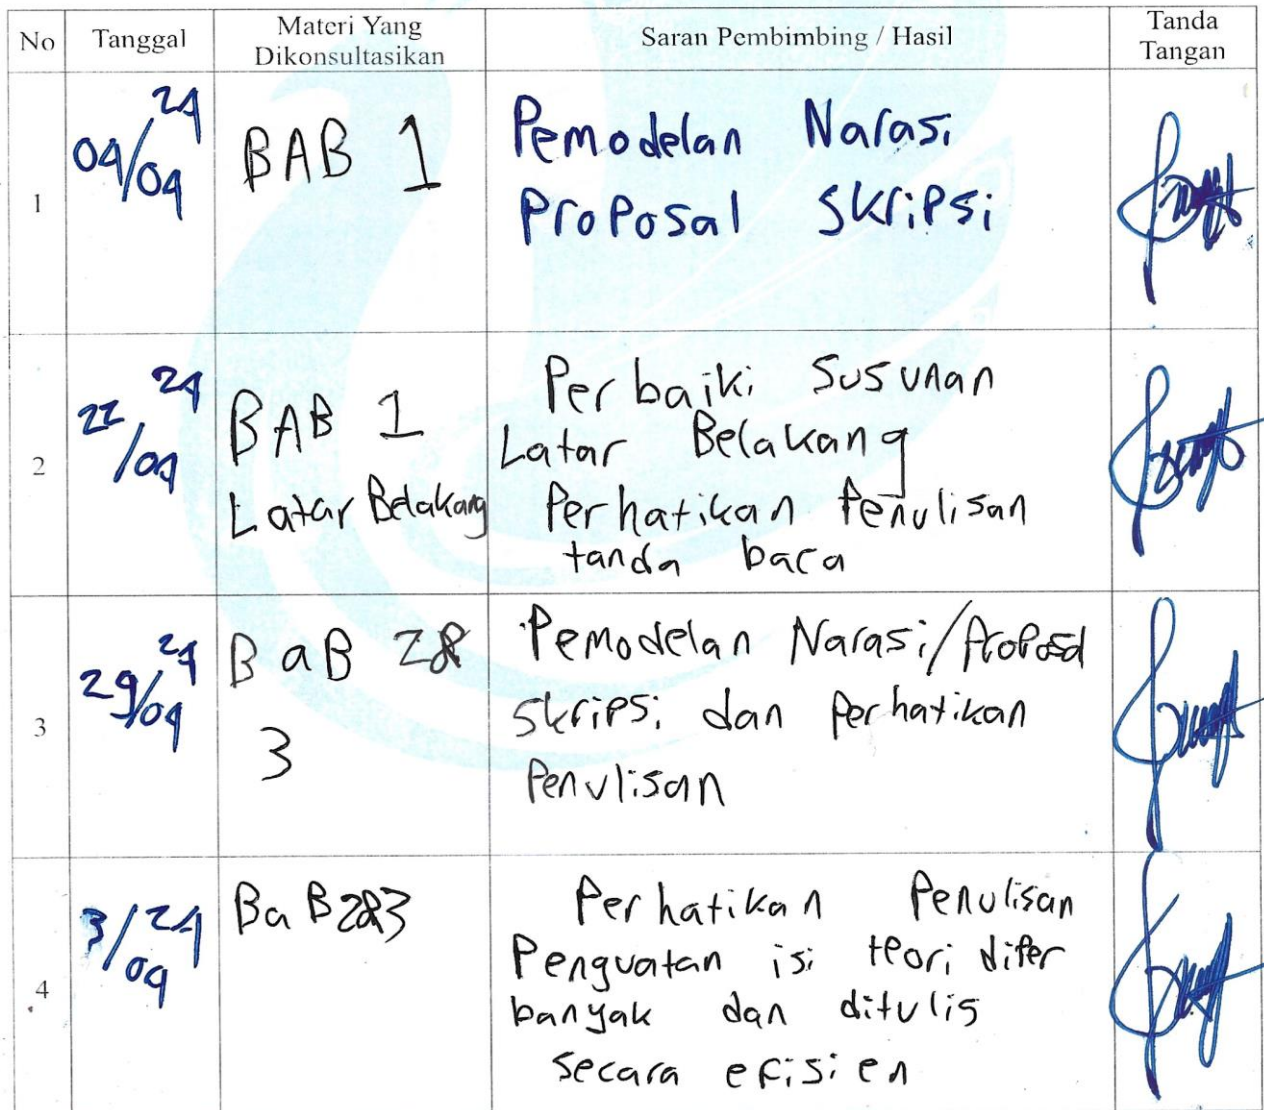 No Tanggal Materi Yang Dikonsultasikan Saran Pembimbing / Hasil Tanda Tangan
1 04/04 24 BAB 1 Pemodelan Narasi
Proposal Skripsi
2 22/04 24 BAB 1 Perbaiki Susunan
Latar Belakang Latar Belakang
Perhatikan Penulisan
tanda baca
3 29/04 24 BaB 2& Pemodelan Narasi/Proposal
3 skripsi dan Perhatikan
Penulisan
4 3/04 24 BaB 2&3 Perhatikan Penulisan
Penguatan isi teori diper
banyak dan ditulis
secara efisien